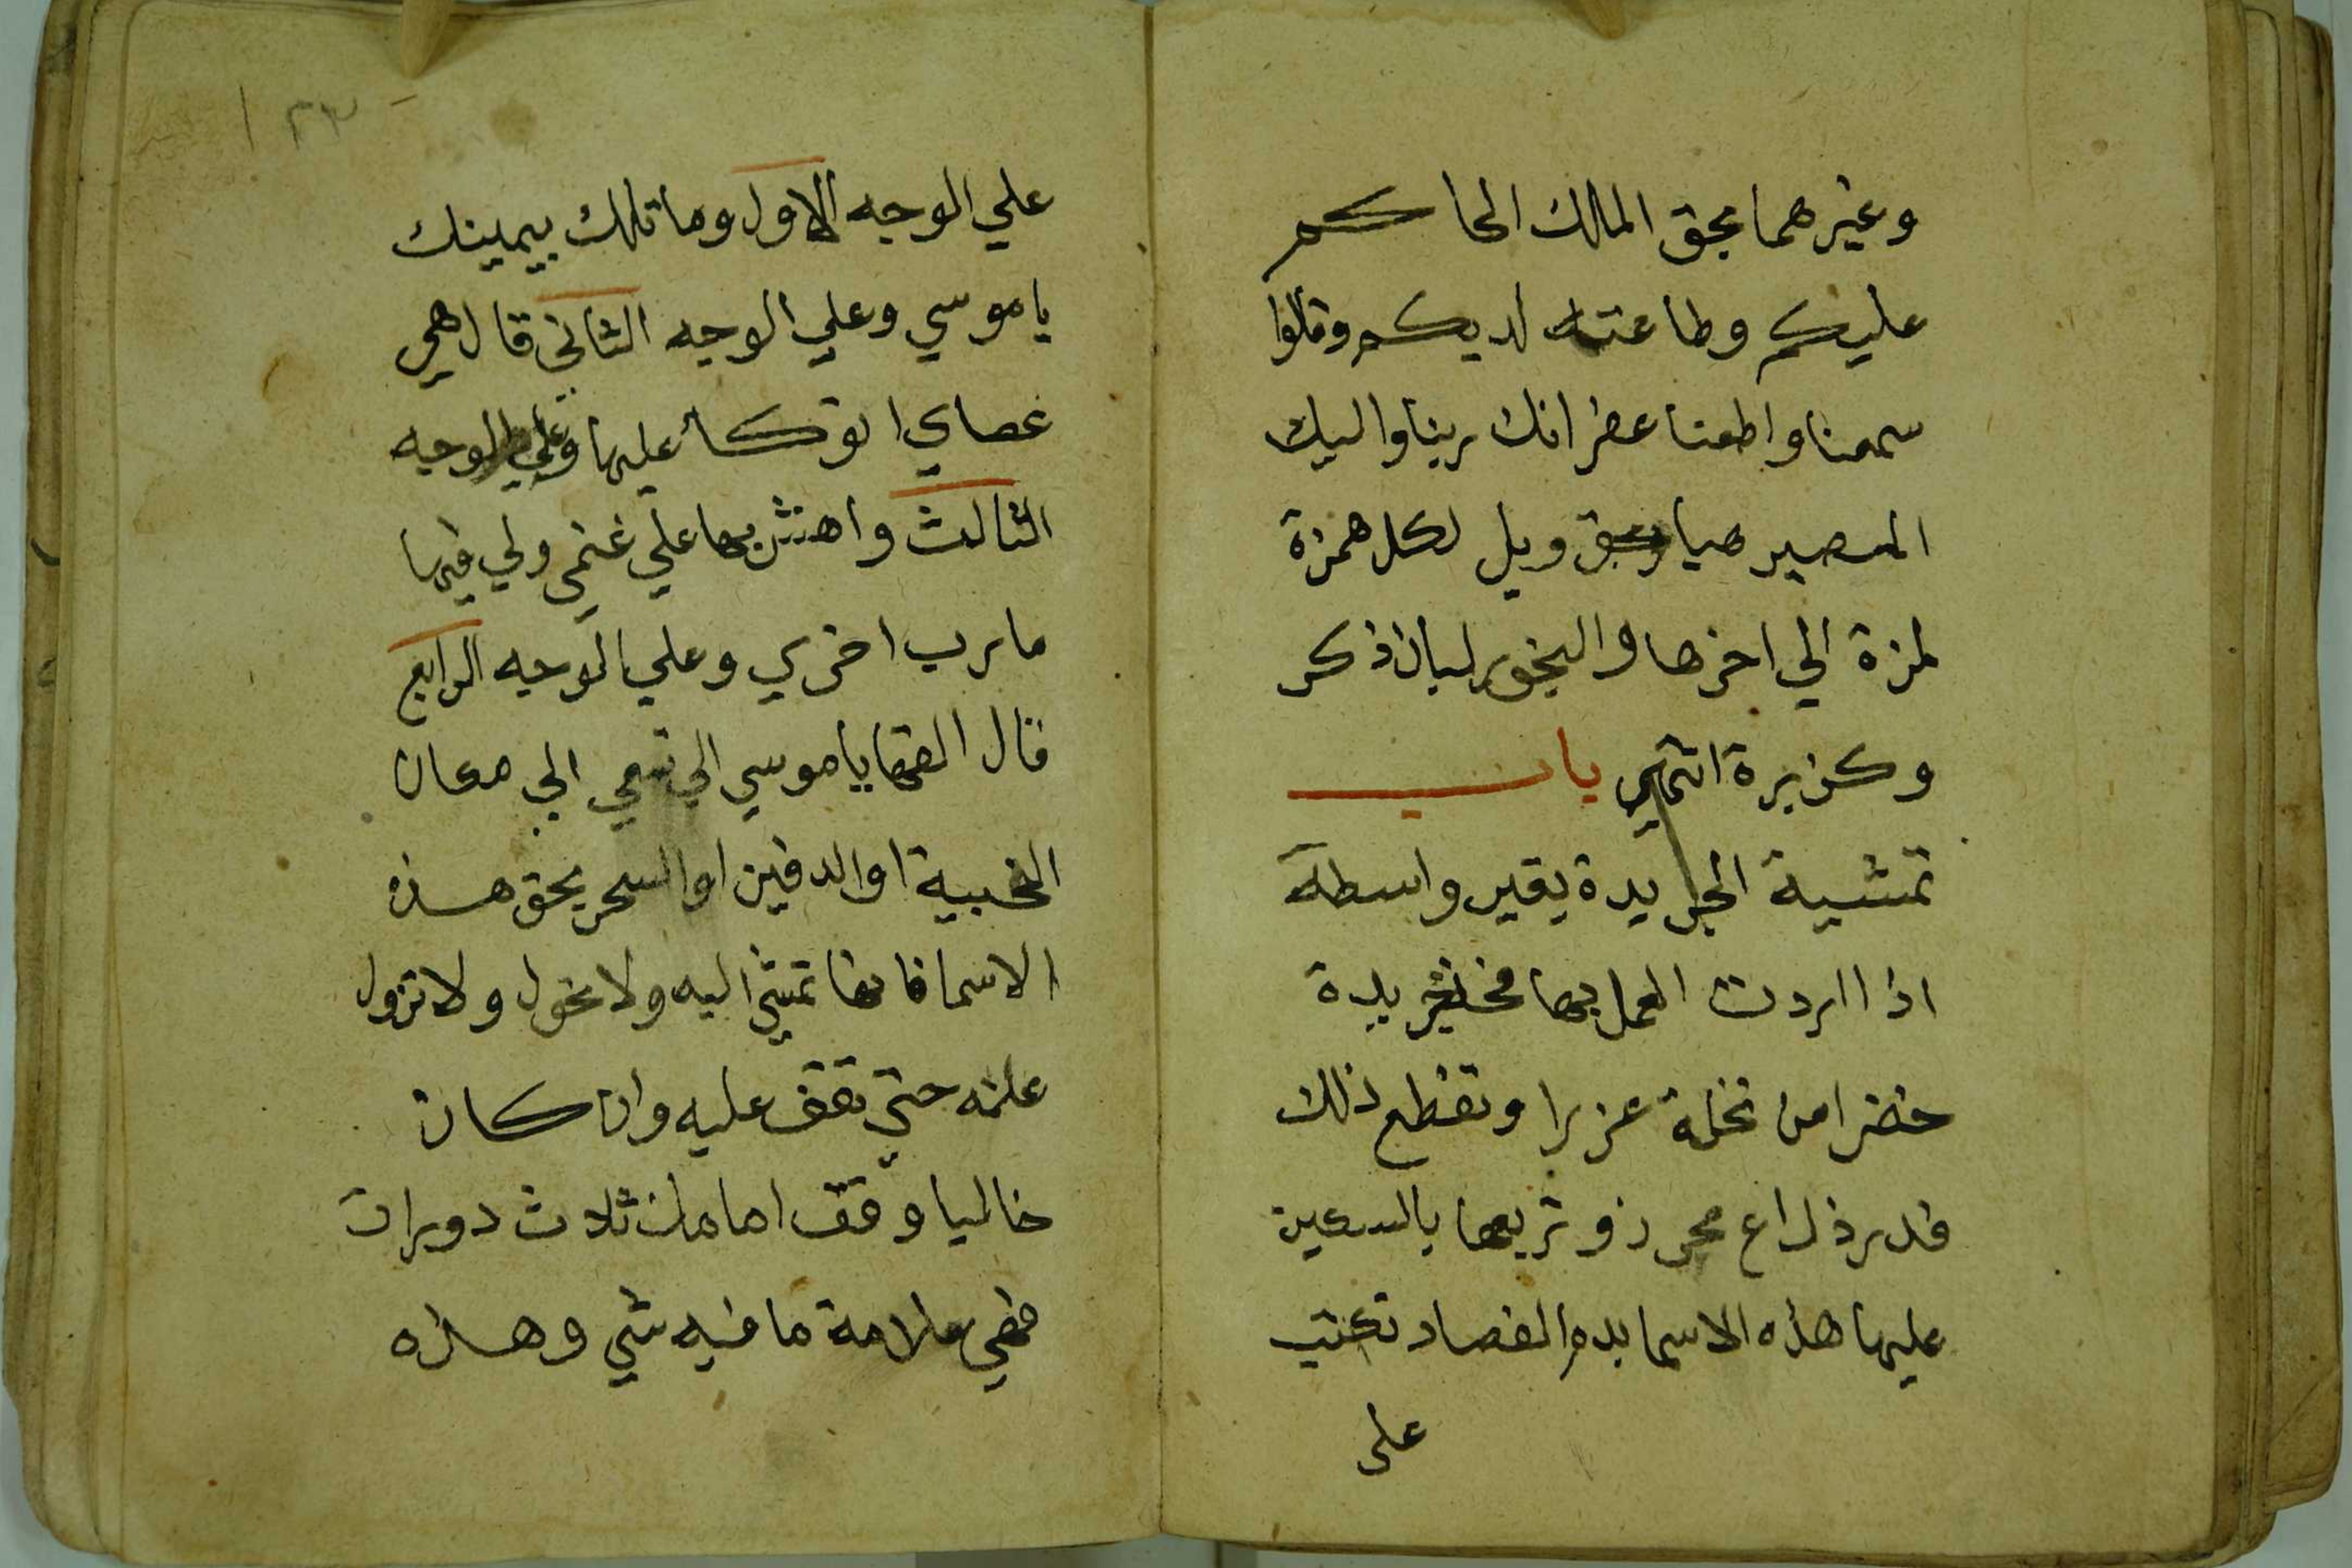 وغيرهما بحق المالك الحاكم
عليكم وطاعته لديكم وقالوا
سمعنا واطعنا غفرانك ربنا واليك
المصير هيا بحق ويل لكل همزة
لمزة الي اخرها والبخور لبان ذكر
وكزبرة انتهي باب
تمشية الجريدة بقير واسطة
اذا اردت العمل بها فخذ جريدة
خضرا من نخلة عزبا وتقطع ذلك
قدر ذراع محرر وتربعها بالسكين
عليها هذه الاسما بدم الفصاد تكتب
على
١٢٣
علي الوجه الاول وما تلك بيمينك
يا موسي وعلي الوجه الثاني قال هي
عصاي اتوكأ عليها وعلي الوجه
الثالث واهش بها علي غنمي ولي فيها
مارب اخري وعلي الوجه الرابع
قال القها يا موسي الي تسعي الي مكان
الخبية او الدفين او السحر بحق هذه
الاسما فانها تمشي اليه ولا تحول ولا تزول
عنه حتي تقف عليه وان كان
خاليا وقف امامك ثلاث دورات
فهي علامة ما فيه شي وهذه